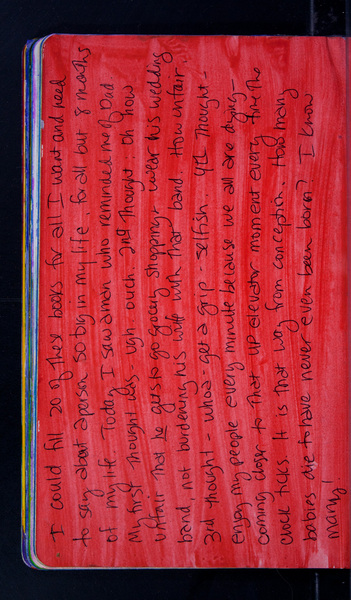 I could fill 20 of these books for all I want and need
to say about a person so big in my life, for all but 8 months
of my life. Today I saw a man who reminded me of Dad
My first thought was - ugh ouch. 2nd thought: oh how
unfair that he gets to go grocery shopping - wear his wedding
band not burdening his wife with that band. How unfair -
3rd thought - whoa - get a grip - selfish. 4th thought -
enjoy my people every minute because we all are dying -
coming closer to that up elevator moment every time the
clock ticks. It is that way from conception. How many
babies die to have never even been born? I know
many!